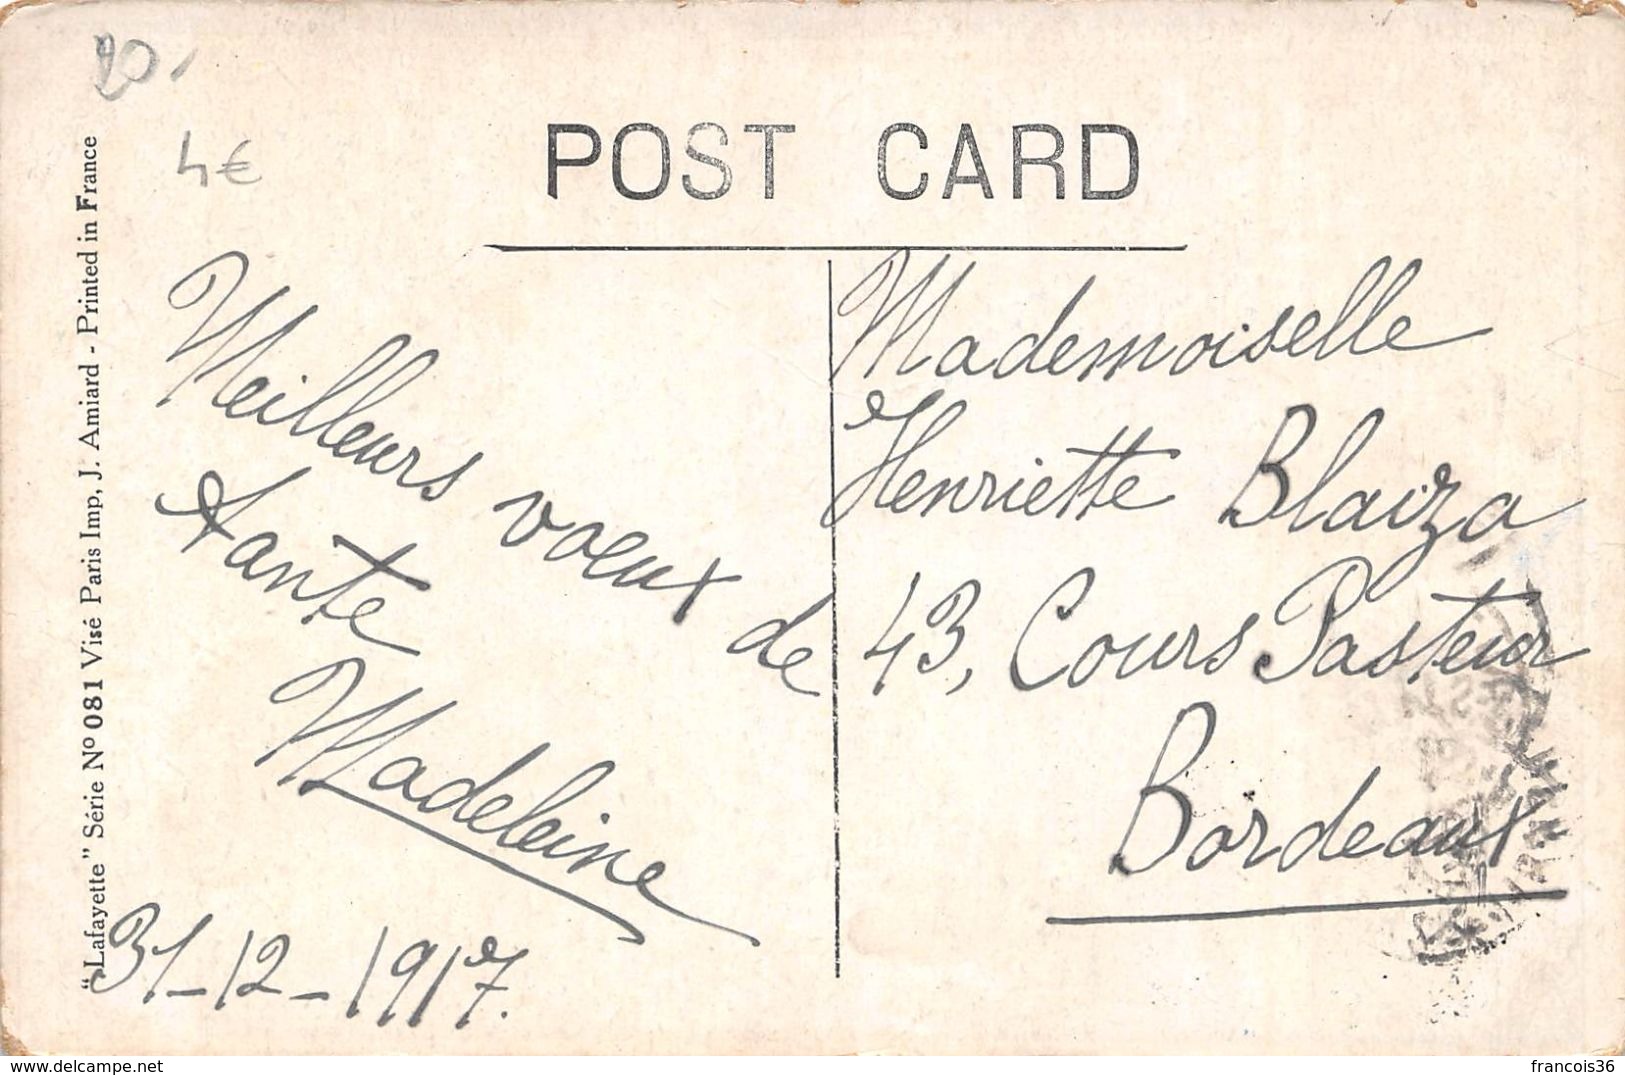 20
4€
POST CARD
"Lafayette" Série Nº 081 Visé Paris Imp, J. Amiard - Printed in France
Meilleurs voeux de
tante
Madeleine
31-12-1917.
Mademoiselle
Henriette Blaiza
43, Cours Pasteur
Bordeaux
www.delcampe.net
francois36